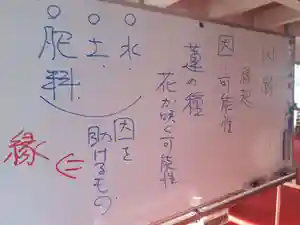 因縁
縁起
因 可能性
蓮の種
花が咲く可能性
水
土
肥料
因を
助けるもの
縁